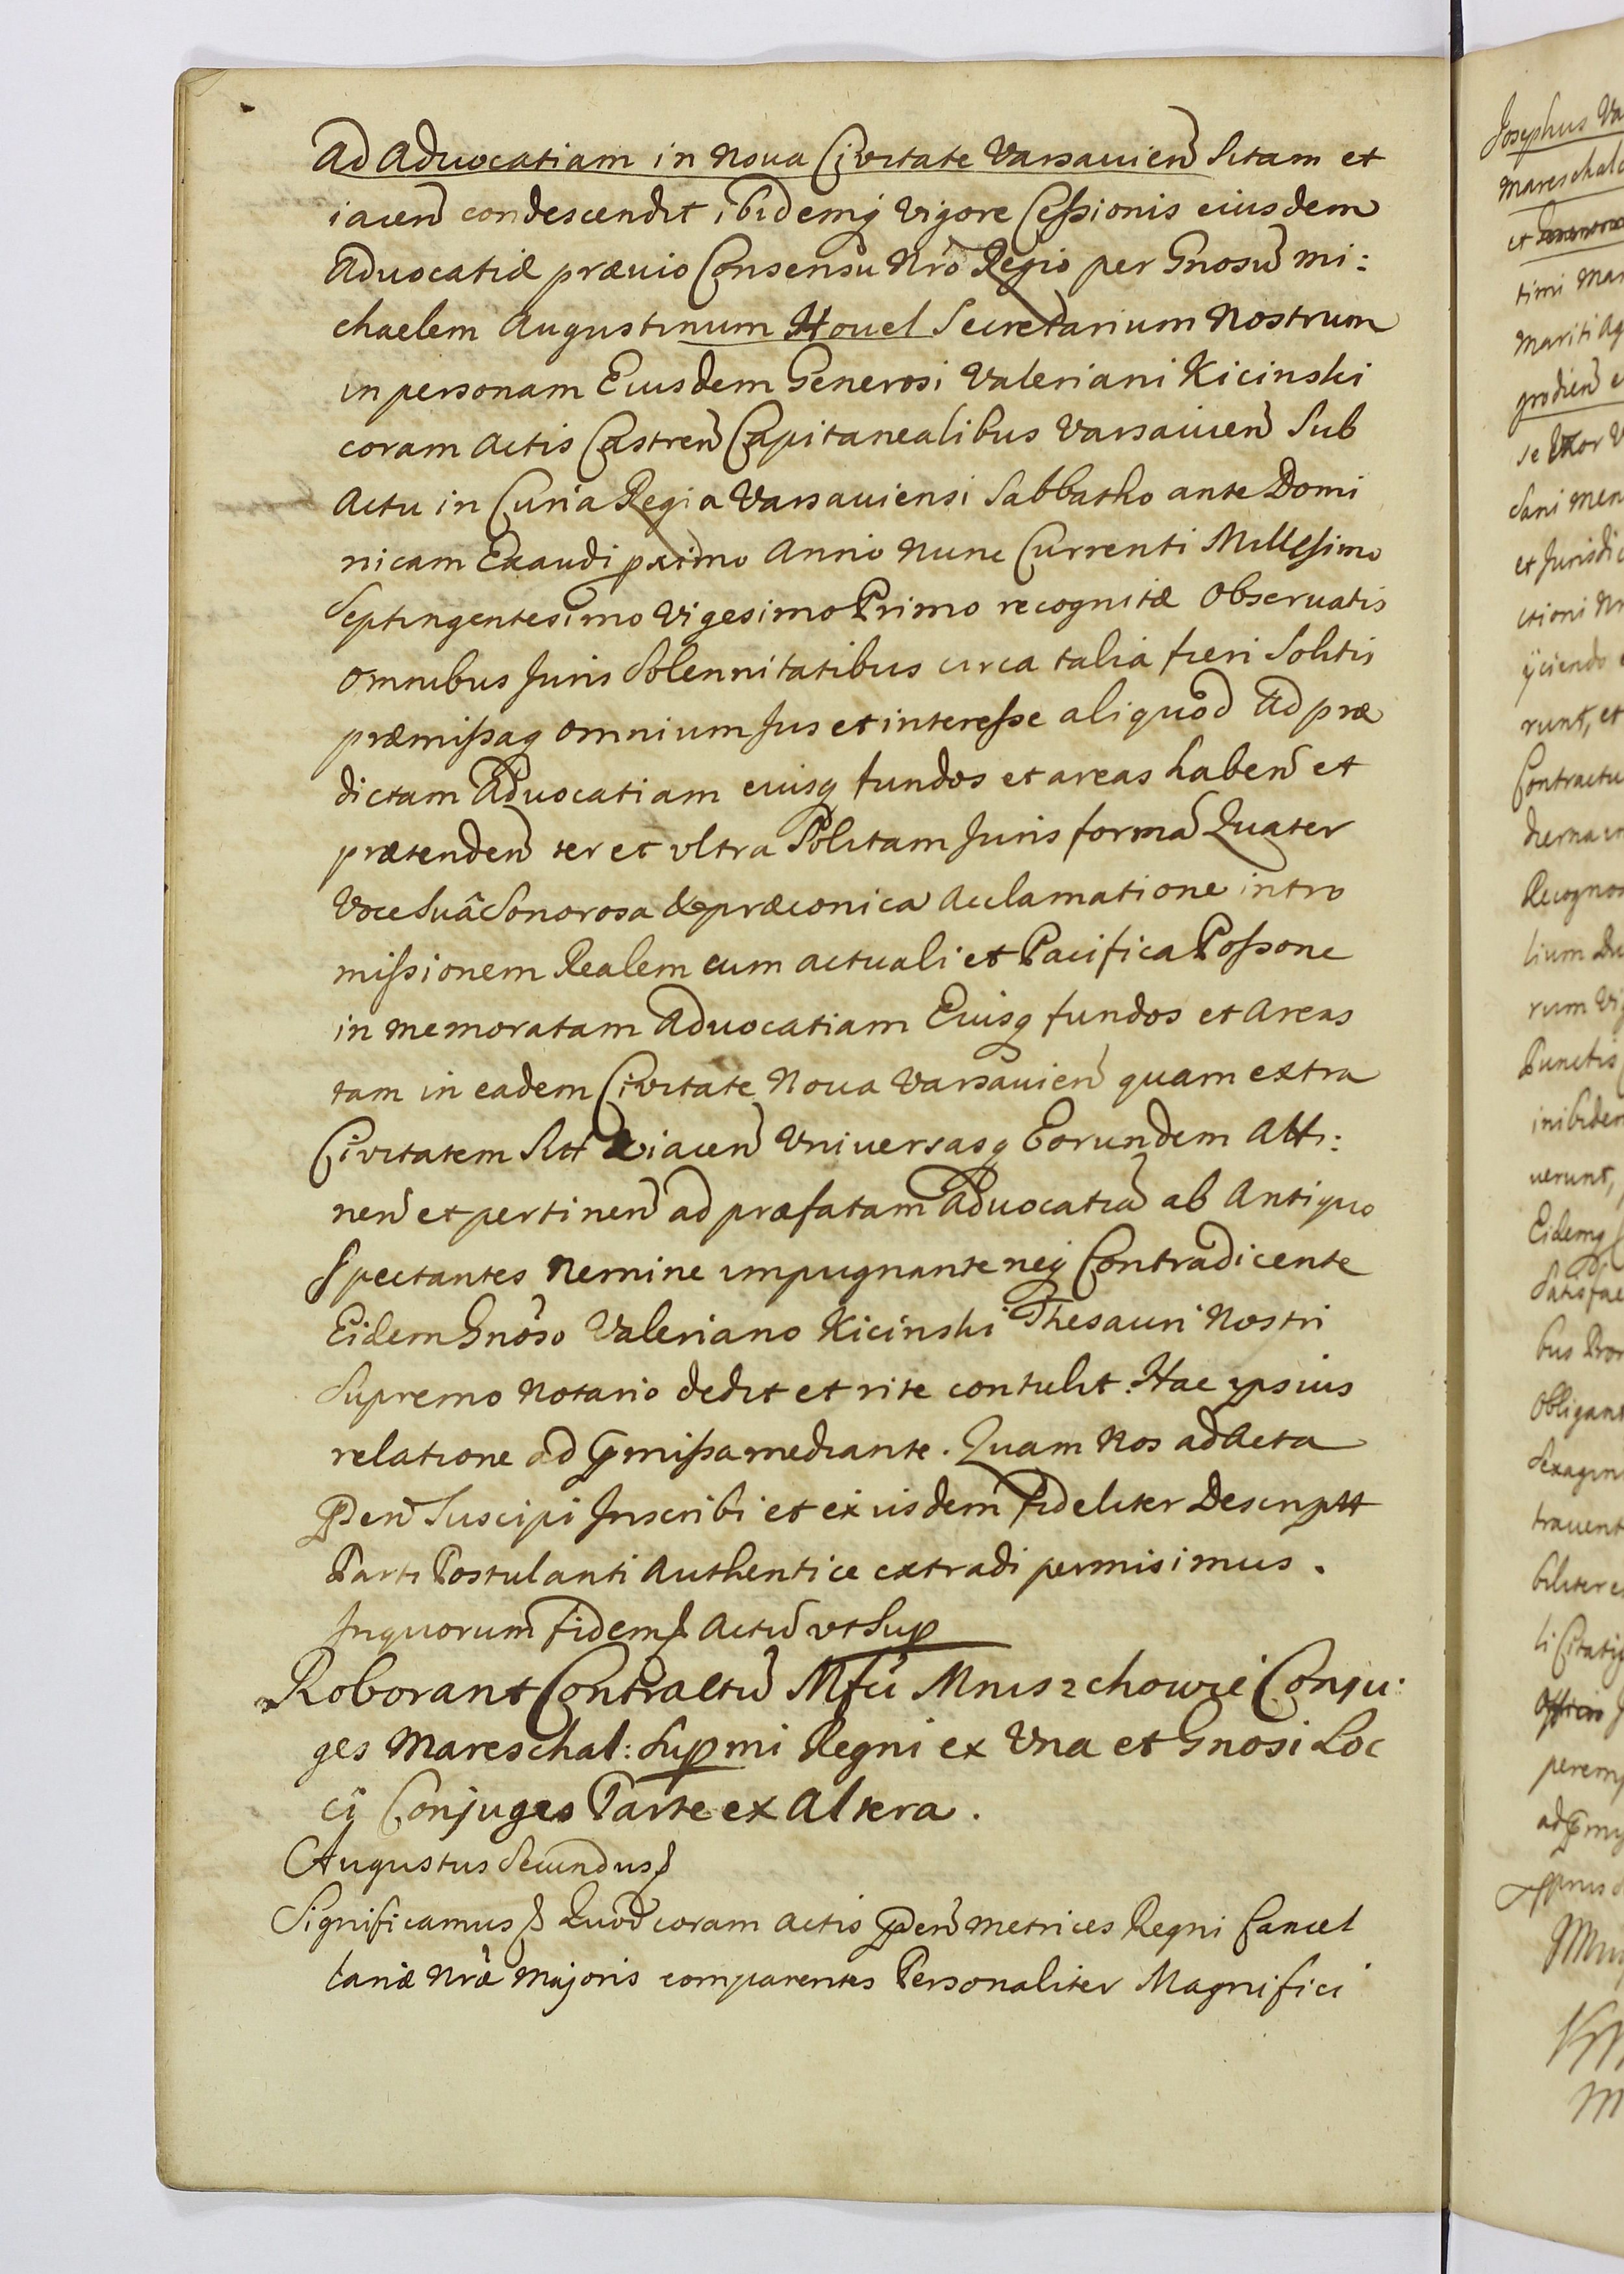 Ad Aduocatiam in Noua Civitate Varsauien Sitam et
iacen condescendit, ibidemq Vigore Cessionis eiusdem
Aduocatiæ præuio Consensu Nro Regio per Gnosum Mi:
chaelem Augustinum Houel Secretarium Nostrum
in personam Eiusdem Generosi Valeriani Kicinski
coram Actis Castren Capitanealibus Varsauien Sub
Actu in Curia Regia Varsauiensi Sabbatho ante Domi
nicam Exaudi primo Anno Nunc Currenti Millesimo
Septingentesimo Vigesimo Primo recognitæ Obseruatis
omnibus Juris Solennitatibus circa talia fieri Solitis
præmissaq omnium Jus et interesse aliquod Ad præ
dictam Aduocatiam eiusq fundos et areas haben et
prætenden ter et ultra Politam Juris forma Quater
Voce Suâ Sonorosa & præconica Acclamatione intro
missionem Realem cum actuali et Pacifica Possone
in memoratam Aduocatiam Eiusq fundos et Areas
tam in eadem Civitate Noua Varsauien quam extra
Civitatem Sitt & iacen Vniuersasq Eorundem Atti:
nen et pertinen ad præfatam Aduocatia ab Antiquo
Spectantes Nemine impugnante neq Contradicente
Eidem Gnoso Valeriano Kicinski Thesauri Nostri
Supremo Notario dedit et rite contulit. Hac ipsius
relatione ad pmissa mediante. Quam Nos ad Acta
pden Suscipi Inscribi et ex iisdem fideliter Descriptt
Parti Postulanti Authentice extradi permisimus.
In quorum fidem & Actu ut Sup
Roborant Contractu Mfci Mniszchowie Conju:
ges Mareschal: Supmi Regni ex Vna et Gnosi Loc
cij Conjuges Parte ex Altera.
Augustus Secundus &
Significamus & Quod coram actis pden Metrices Regni Cancel
lariæ Nræ Majoris comparentes Personaliter Magnifici